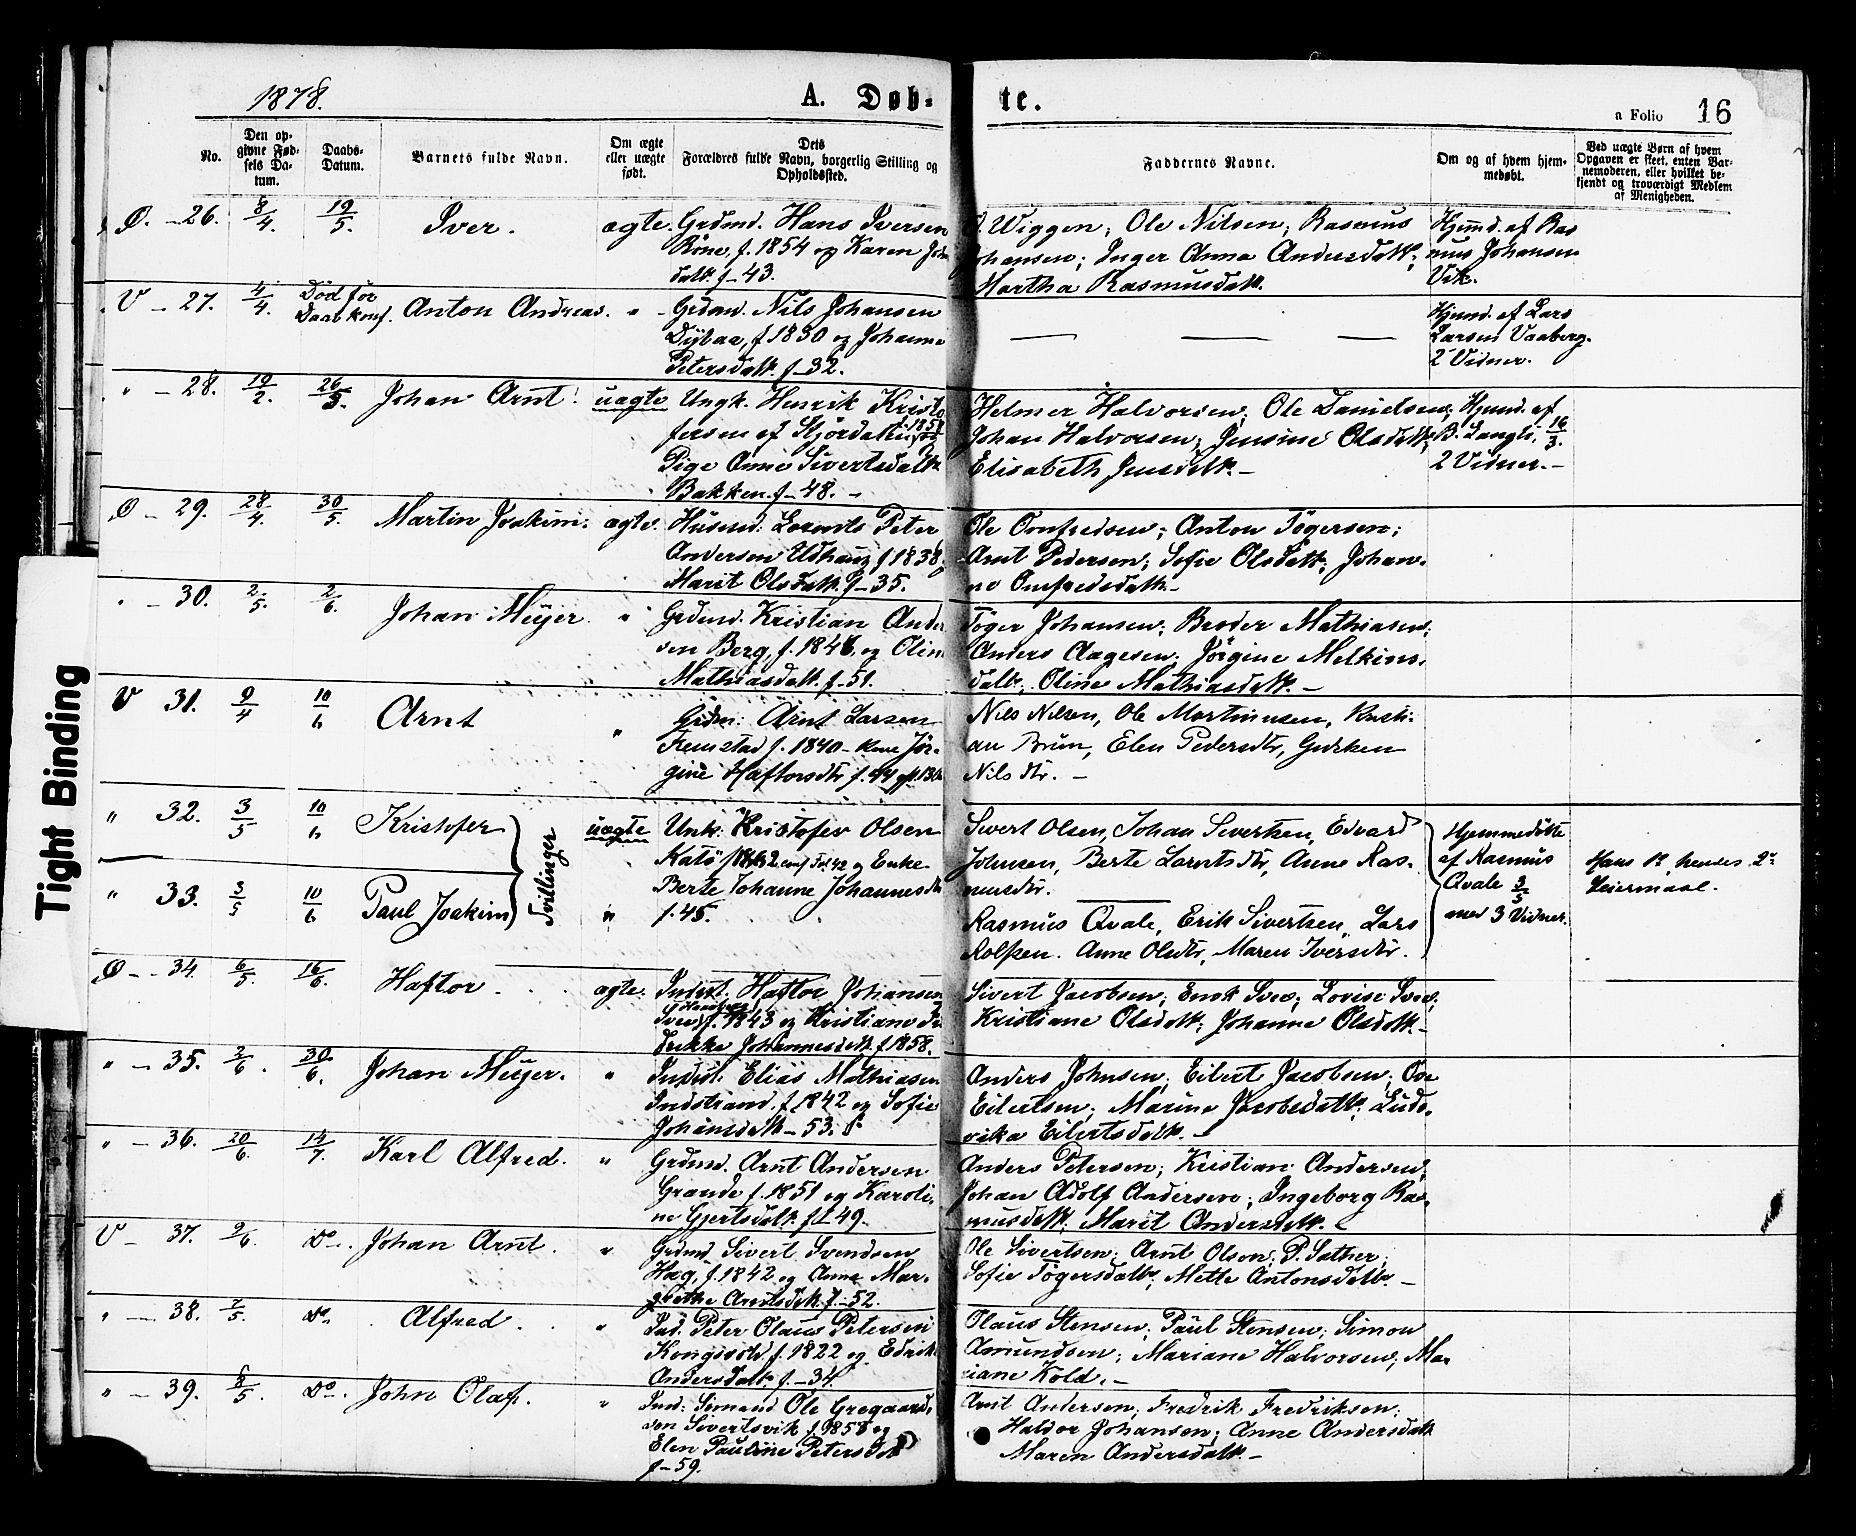 1878.
A. Døb-
te.
a Folio 16
No.
Den op-
givne Fød-
sels Da-
tum.
Daabs-
Datum.
Barnets fulde Navn.
Om ægte
eller uægte
født.
Dets
Forældres fulde Navn, borgerlig Stilling og
Opholdssted.
Faddernes Navne.
Om og af hvem hjem-
medøbt.
Ved uægte Børn af hvem
Opgaven er skeet, enten Bar-
nemoderen, eller hvilket be-
kjendt og troværdigt Medlem
af Menigheden.
Ø. - 26. 8/4. 19/5. Iver. ægte.
Grdmd. Hans Iversen
f. 1854 og Karen
datt. f - 43.
Wiggen; Ole Nilsen; Rasmus
Johansen; Inger Anna Andersdatt;
Martha Rasmusdatt.
Hjemd. af Ras
mus Johansen
Vik.
V - 27. 4/4. Død før
Daab konf. Anton Andreas. "
Grdmd. Nils Johansen
f 1830 og Johanna
Petersdatt. f - 32.
Hjemd. af Lars
Larsen Vaaberg.
2 Vidner.
" - 28. 19/2. 26/5. Johan Arnt. uægte
Ungk. Henrik Kristo
fersen af Stjørdalen 1858 og
Pige Anne Sivertsdatt
Bakken f - 48. -
Helmer Halvorsen; Ole Danielsen;
Johan Halvorsen; Jensine Olsdatt;
Elisabeth Jensdatt. -
Hjemd. af
B. Langli, 16/3.
2 Vidner. -
Ø - 29. 28/4. 30/5. Martin Joakim. ægte.
Husmd: Lorents Peter
Andersen Udhaug f 1838 og
Marit Olsdatt. f - 35.
Ole Omfredsen; Anton Tøgersen;
Arnt Pedersen; Sofie Olsdatt; Johan-
ne Omfredsdatt -
" - 30. 2/5. 2/6. Johan Meyer. "
Grdmd. Kristian Ander
sen Berg, f. 1846, og Olin
Mathiasdatt. f - 51.
Tøger Johansen; Broder Mathiasen;
Anders Aagesen; Jørgine Melkiors-
datt; Oline Mathiasdatt. -
V 31. 9/4 10/6 Arnt "
Grdm: Arnt Larsen
f. 1840 - Kone Jør-
gine Haftorsdtr f. 44
Nils Nilsen, Ole Martinusen, Kristi-
an Brun, Elen Pedersdtr, Gurken
Nilsdtr. -
" 32. 3/5 10/6 Kristofer uægte
Tvillinger
Unk: Kristofer Olsen
Katø og Enke
Berte Johanne Johannesdtr
f. 45.
Sivert Olsen, Johan Sivertsen, Edvard
Johnsen, Berte Larntsdtr, Anne Ras-
musdtr.
Hjemmedøbte
af Rasmus
Qvale 3/5
med 3 Vidner.
Hans 1ste, hendes 2det
Leiermaal.
" 33. 3/5 10/6 Paul Joakim "
Rasmus Qvale, Erik Sivertsen, Lars
Rolfsen. Anne Olsdtr, Maren Iversdtr.
Ø - - 34. 6/5. 16/6. Haftor. ægte.
Indst: Haftor Johansen
f. 1843 og Kristiane
drikke Johannesdatt f. 1858.
Sivert Jacobsen; Enok Sved; Lovise Sved;
Kristiane Olsdatt; Johanne Olsdatt -
" - 35. 3/6. 30/6. Johan Meyer. "
Indst. Elias Mathiasen
Indstrand, f. 1842 og Sofie
Johansdatt - 53.
Anders Johnsen; Eilert Jacobsen; Ove
Eilertsen; Marine Jacobsdatt; Lude-
vika Eilertsdatt. -
" - 36. 20/6. 14/7. Karl Alfred. "
Grdmd. Arnt Andersen
Grande f. 1851 og Karoli-
ne Gjertsdatt. f - 49.
Anders Petersen; Kristian Andersen;
Johan Adolf Andersen; Ingeborg Ras-
musdatt; Marit Andersdatt. -
V - 37. 9/6. Do. Johan Arnt. "
Grdmd Sivert Svendsen
Hag, f. 1842 og Anna Mar-
grethe Arntsdatt. f - 52.
Ole Sivertsen; Arnt Olsen; P. Sather;
Sofie Tøgersdatt; Mette Antonsdatt -
" - 38. 7/5. Do. Alfred. "
Ind. Peter Olaus Petersen
Kongsvold f. 1822 og
Andersdatt. f. - 34.
Olaus Stensen; Paul Stensen; Simon
Amundsen; Mariane Halvorsen; Ma-
riane Kold. -
" - 39. 8/5. Do. John Olaf. "
Ind: Sømand Ole Gregaard-
sen Sivertsvik f. 1858 og
Elen Pauline Petersdtt
f - 59.
Arnt Andersen; Fredrik Fredriksen;
Haldor Johansen; Anne Andersdatt
Maren Andersdatt. -
Tight Binding